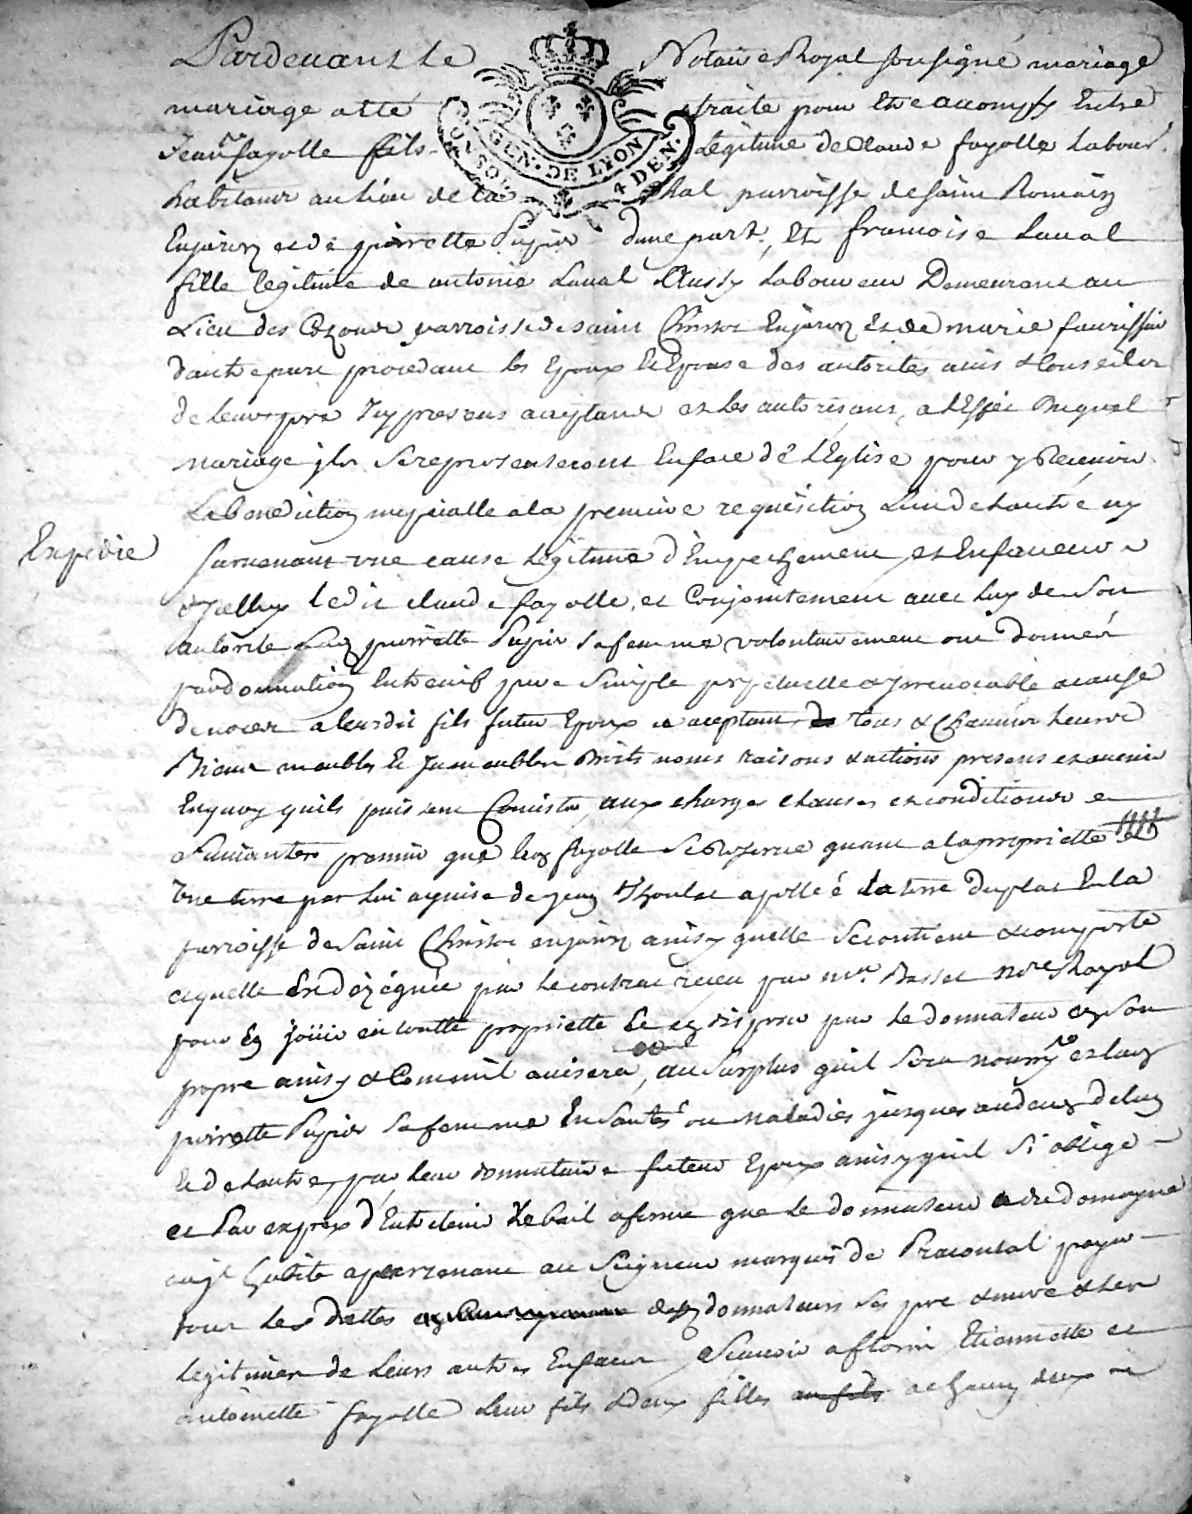 Pardevant le Notaire Royal soussigné mariage
GEN. DE LYON
4 DEN.
mariage a été traité pour être accomply Entre
Jean fayolle fils Legitime de Claude fayolle Labour.
habitant au lieu de la parroisse de saint Romain
Enjarez et de pierrette Pupier d'une part, Et francoise Laval
fille legitime de antoine Laval Aussy Laboureur Demeurant au
Lieu des parroisse de saint Christot Enjarez Et de marie
d'autre part procedant les Epoux et Epouse des autorités avis & Conseils
de leurs pere Icy presens acceptant et les autorisant, a l'Effet Duquel
mariage ils se representeront En face de L'Eglise pour y Recevoir
La benediction nuptialle a la premiere requisition L'un de L'autre ny
Expedié
survenant une cause Légitime d'Empechement et En faveur
d'Icelluy ledit claude fayolle, et Conjointement avec luy de son
autorité Lad. pierrette Pupier sa femme volontairement ont donné
par donnation Entre vifs pure simple perpetuelle & Irrevocable a cause
de noces a leurdit fils futur Epoux acceptant tous & Chacuns leurs
Biens meubles Et Immeubles droits noms raisons & actions presens et avenir
En quoy quils puissent Consister, aux charges clauses et conditions
suivantes premier que led. fayolle se Reserve quant a la proprietté
Une terre par lui aquise de jean apellée la terre Duplat En la
parroisse de saint Christot enjarez ainsy quelle se contient & comporte
et quelle Est dezignée par le contrat receu par me. Basset nore Royal
pour En jouir en toutte proprietté Et en disposer par le donnateur En son
propre ainsy & Comme il avisera, au surplus quil sera nourry et lad.
pierrette Pupier sa femme En santé ou maladies jusques au deces de lun
Et de l'autre, par leur donnataire futeur Epoux ainsy quil s'i oblige
et Par exprès d'Entretenir le bail a ferme que le donnateur a du domayne
qu'il habite apartenant au seigneur marquis de Pracontal payer
tous les dettes desd. donnateurs ses pere & mere & les
legitimes de leurs autres Enfans, Scavoir a Etiennette et
antoinette fayolle leur fils & deux filles a chacun deux